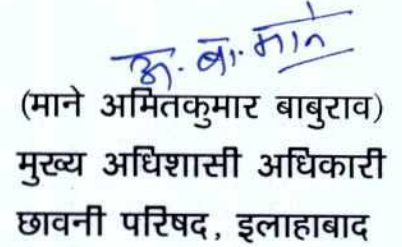 अ. बा. माने
(माने अमितकुमार बाबुराव)
मुख्य अधिशासी अधिकारी
छावनी परिषद, इलाहाबाद